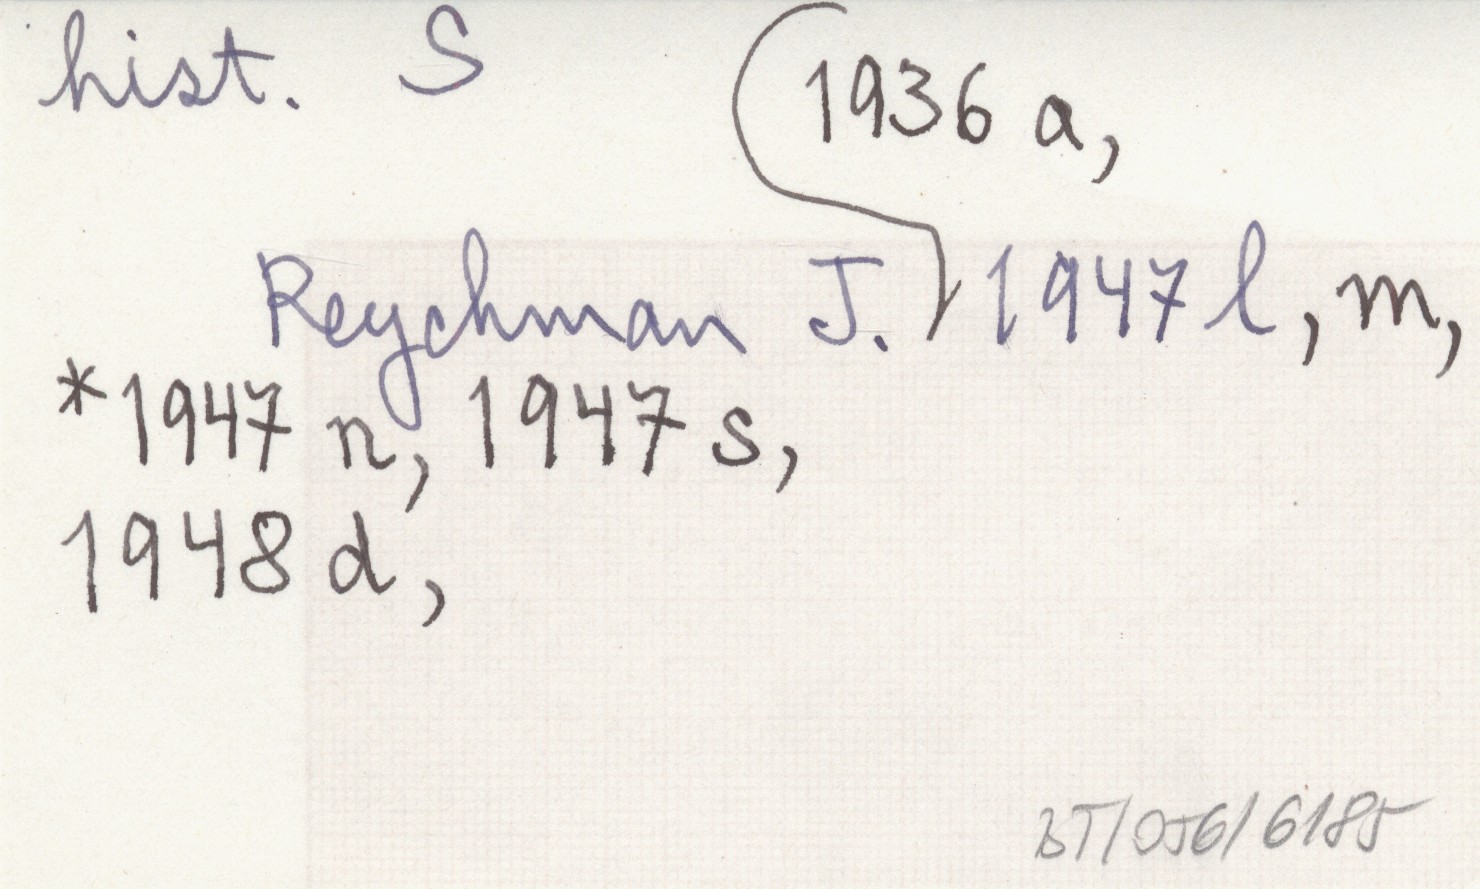 hist. S
1936 a,
Reychman J. 1947 l, m,
*1947 n, 1947 s,
1948 d,
BT/056/6185